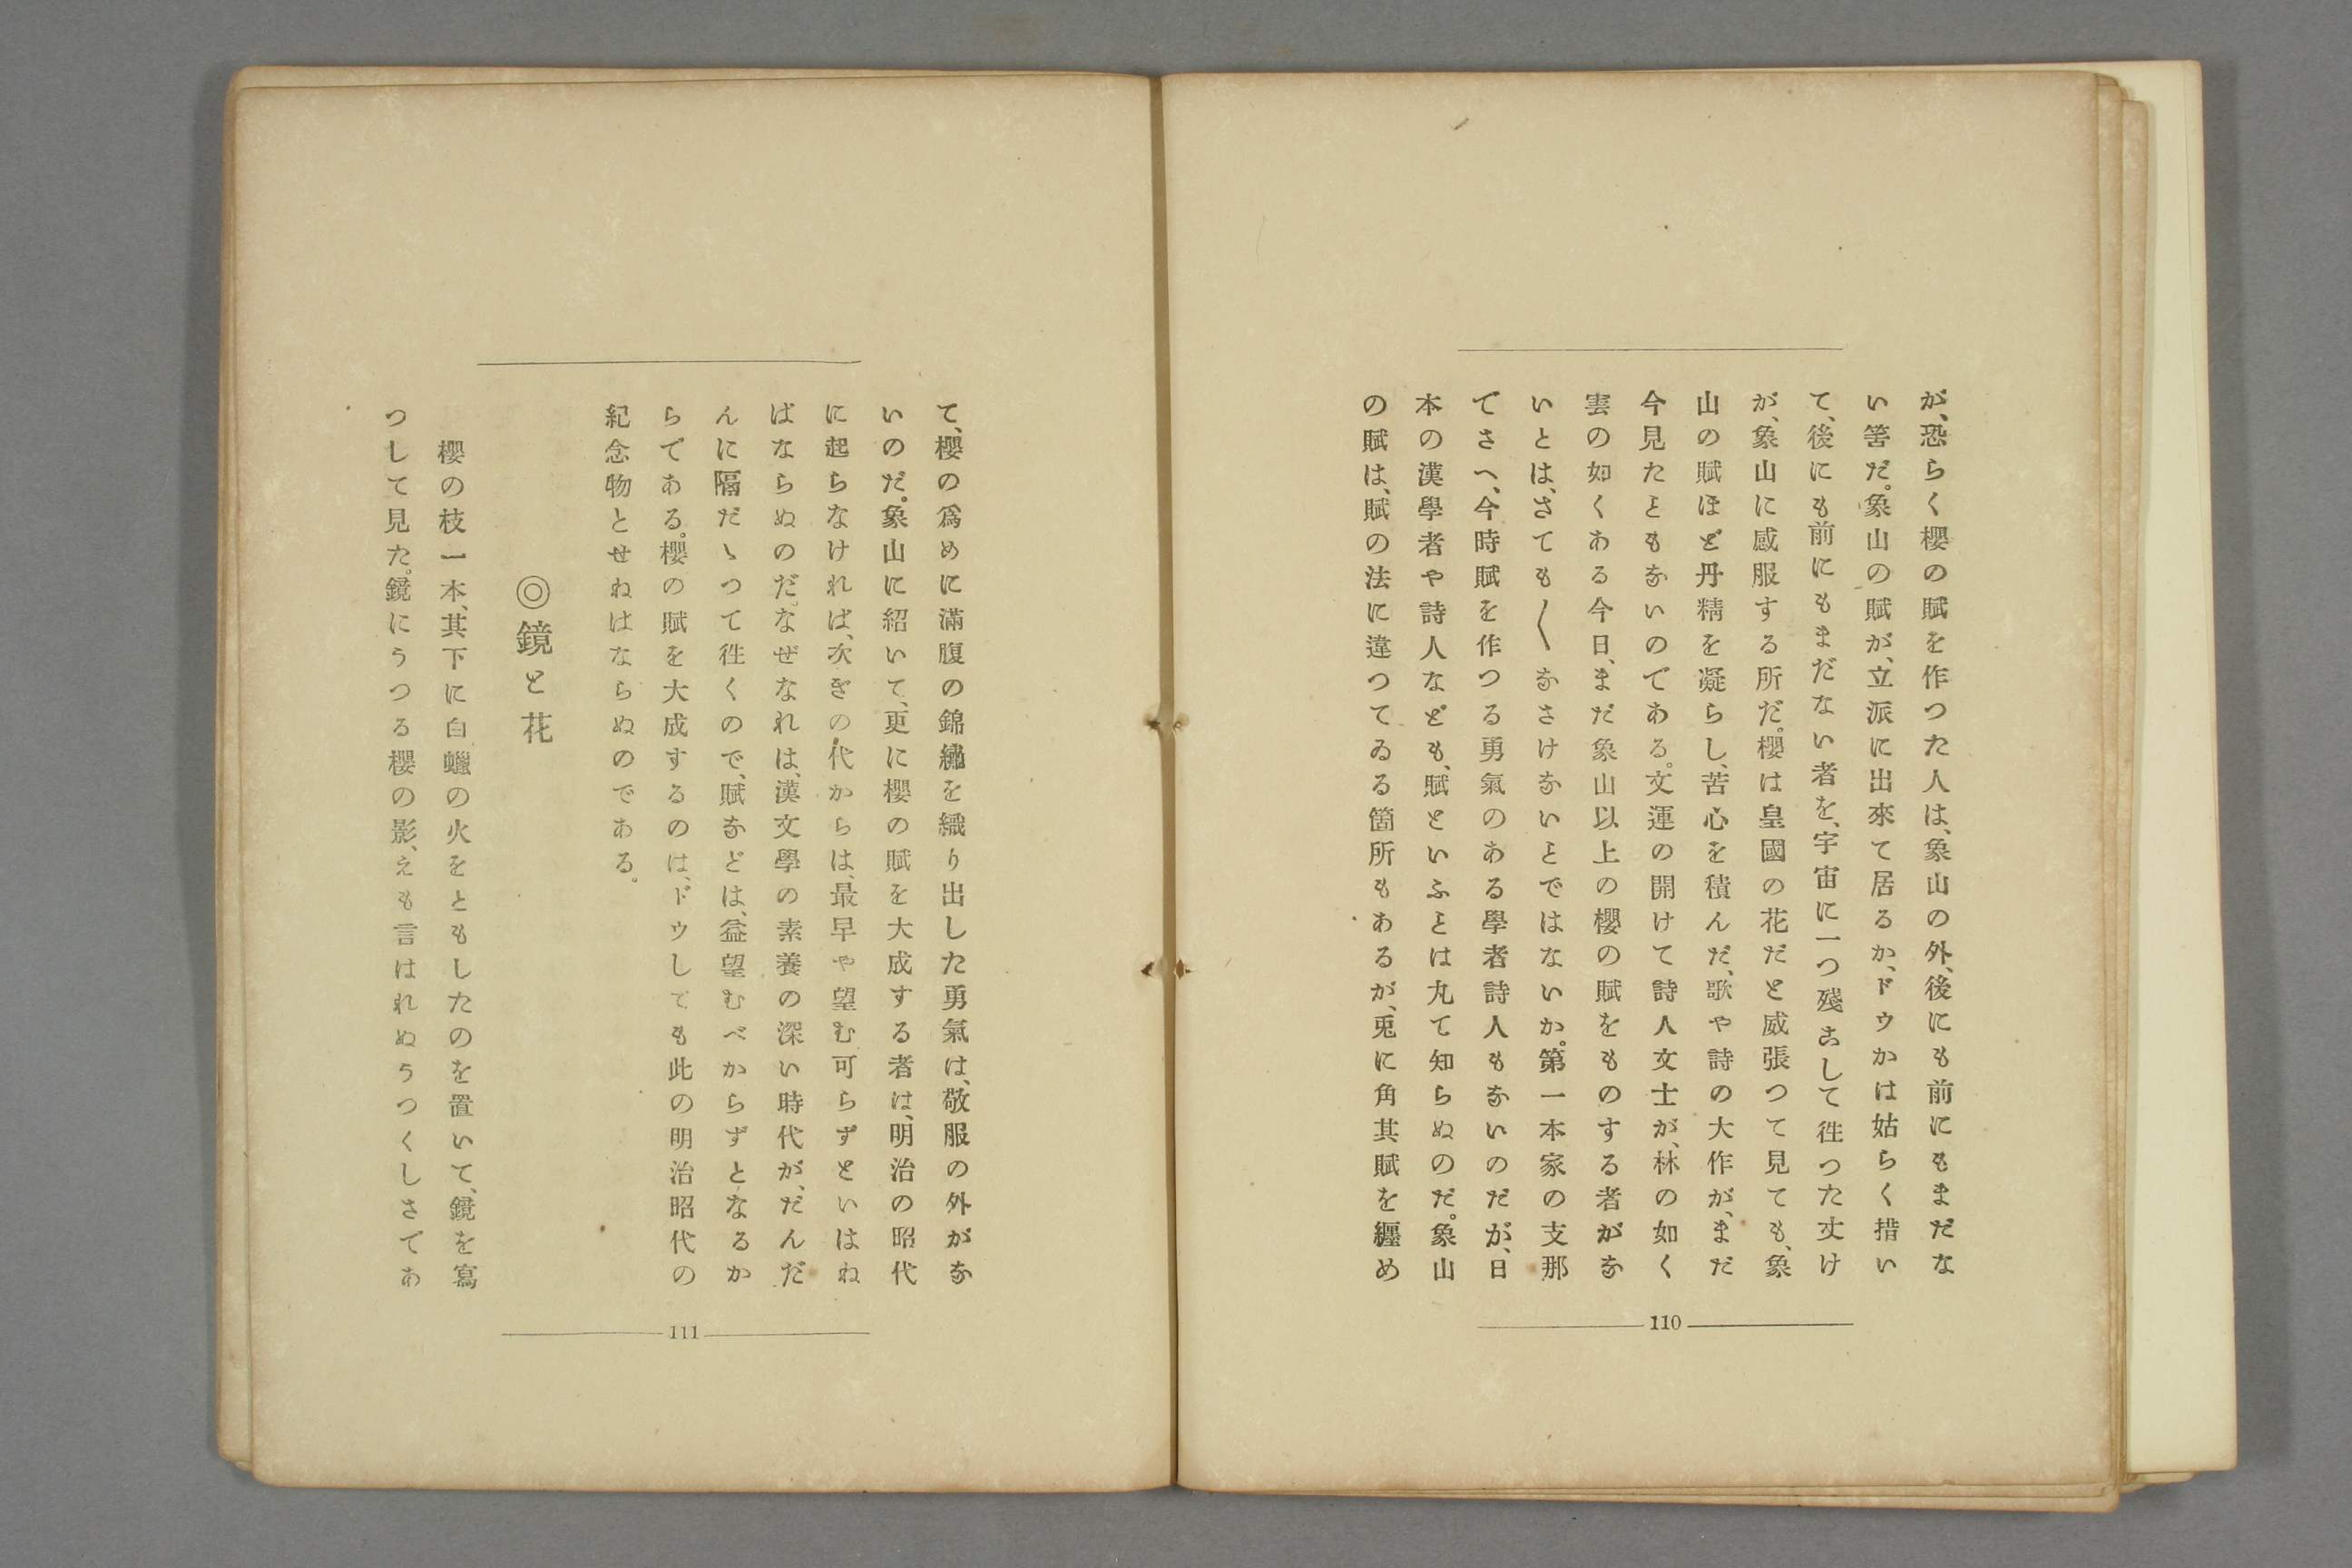 が、恐らく櫻の賦を作つた人は、象山の外、後にも前にもまだな
い筈だ。象山の賦が、立派に出來て居るか、ドウかは姑らく措い
て、後にも前にもまだない者を、宇宙に一つ殘こして徃つた丈け
が、象山に感服する所だ。櫻は皇國の花だと威張つて見ても、象
山の賦ほど丹精を凝らし、苦心を積んだ、歌や詩の大作が、まだ
今見たこともないのである。文運の開けて詩人文士が、林の如く
雲の如くある今日、まだ象山以上の櫻の賦をものする者がな
いとは、さても〱なさけないことではないか。第一本家の支那
でさへ、今時賦を作つる勇氣のある學者詩人もないのだが、日
本の漢學者や詩人なども、賦といふことは丸て知らぬのだ。象山
の賦は、賦の法に違つてゐる箇所もあるが、兎に角其賦を纒め
110
て、櫻の爲めに滿腹の錦繡を織り出した勇氣は、敬服の外がな
いのだ。象山に紹いで、更に櫻の賦を大成する者は、明治の昭代
に起らなければ、次ぎの代からは、最早や望む可らずといはね
ばならぬのだ。なぜなれは、漢文學の素養の深い時代が、だんだ
んに隔だゝつて徃くので、賦などは、益望むべからずとなるか
らである。櫻の賦を大成するのは、ドウしても此の明治昭代の
紀念物とせねはならぬのである。
◎鏡と花
櫻の枝一本、其下に白蠟の火をともしたのを置いて、鏡を寫
つして見た。鏡にうつる櫻の影、えも言はれぬうつくしさであ
111